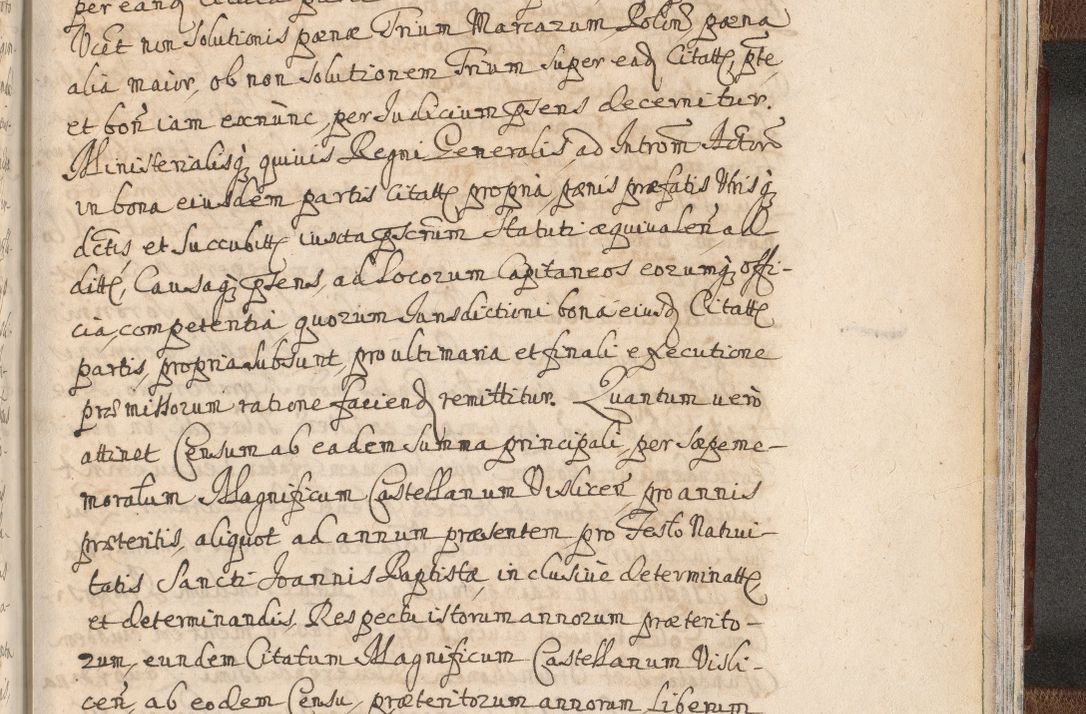 per eand Citata parte
Ucet non Solutionis pœnæ Trium Marcarum Polon pœna
alia maior, ob non Solutionem Trium super ead Citatte, pte
et boñ iam exnunc, per Judicium pñsens decernitur.
Ministerialisq, quivis Regni Generalis, ad Introm Actoro
in bona eiusdem partis Citatte propria, pœnis præfatis Vtrisq
dctis et Succubitte iuxta pscrum Statuti æquivaleñ all
ditte, Causaq, pñsens, ad Locorum Capitaneos eorumq, offi-
cia, competentia quorum Iurisdictioni bona eiusd Citatte
partis, propria subsunt, pro ultimaria et finali executione
præmissorum ratione faciend remittitur. Quantum verò
attinet Censum ab eadem summa principali, per sæpeme-
moratum Magnificum Castellanum Visliceñ pro annis
præteritis, aliquot ad annum præsentem pro Festo Nativi-
tatis Sancti Joannis Baptistæ inclusive determinatte
et determinandis, Respectu istorum annorum præterito-
rum, eundem Citatum Magnificum Castellanum Visli-
ceñ, ab eodem Censu, præteritorum annorum Liberum